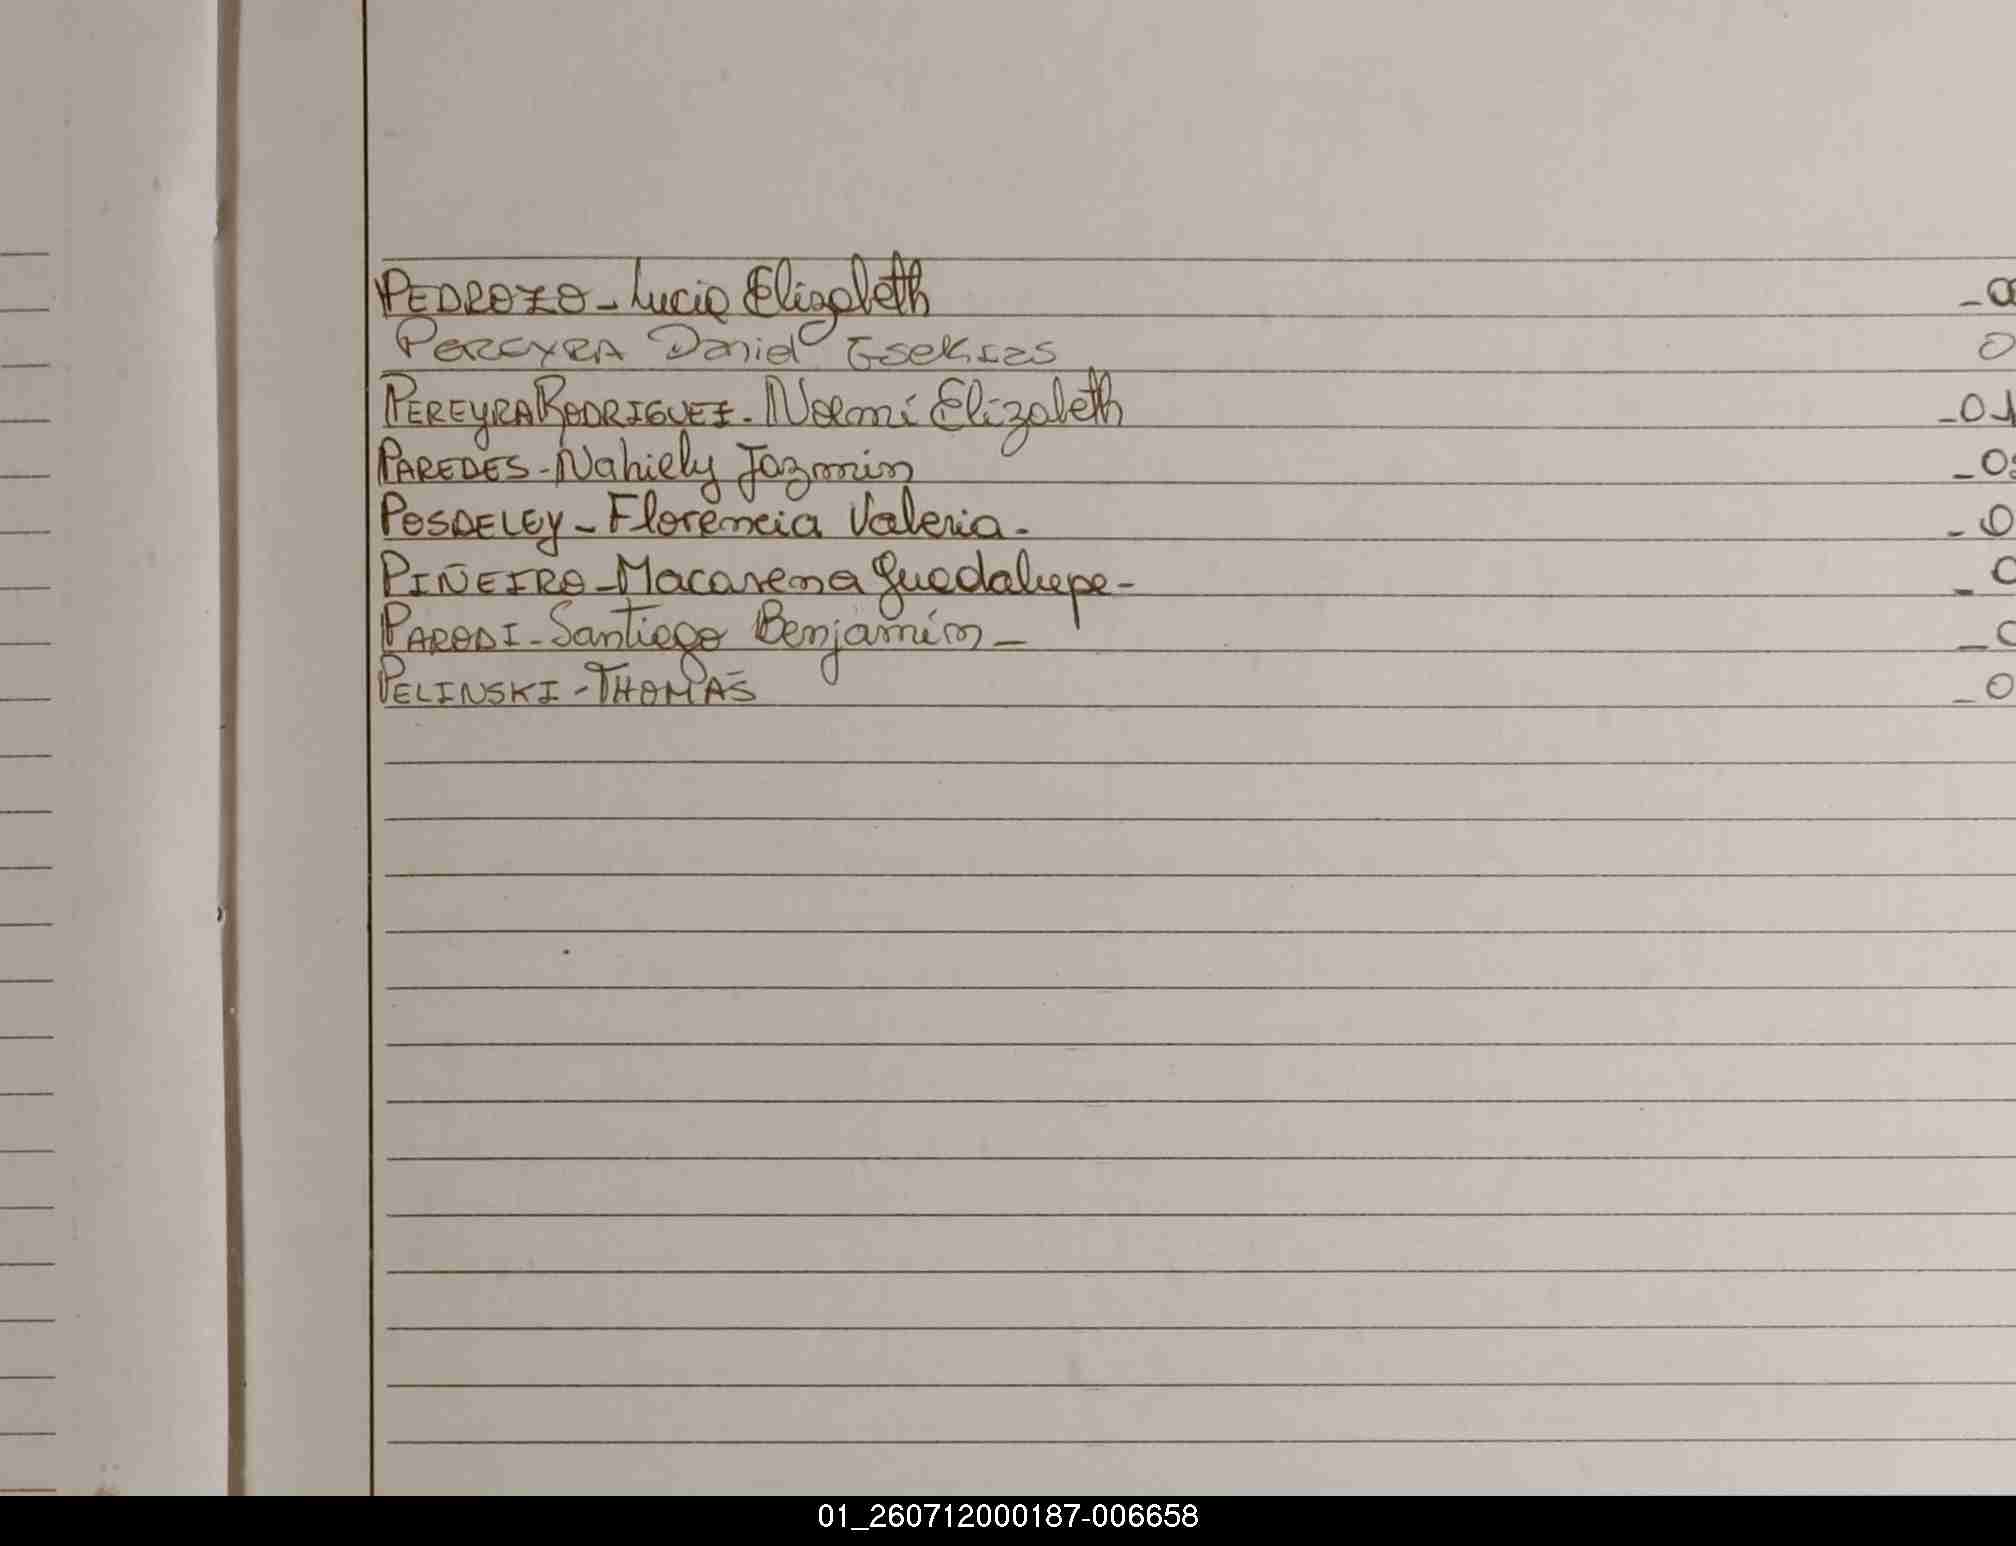 PEDROZO - Lucia Elizabeth _ 0
PEREYRA Daniel 0
PEREYRA RODRIGUEZ - Noemí Elizabeth _ 01
PAREDES - Nahiely Jazmin _ 0
POSDELEY - Florencia Valeria - _ 0
PIÑEIRO - Macarena Guadalupe - _ 0
PARODI - Santiago Benjamín _ _ 0
PELINSKI - THOMAS _ 0
01_260712000187-006658